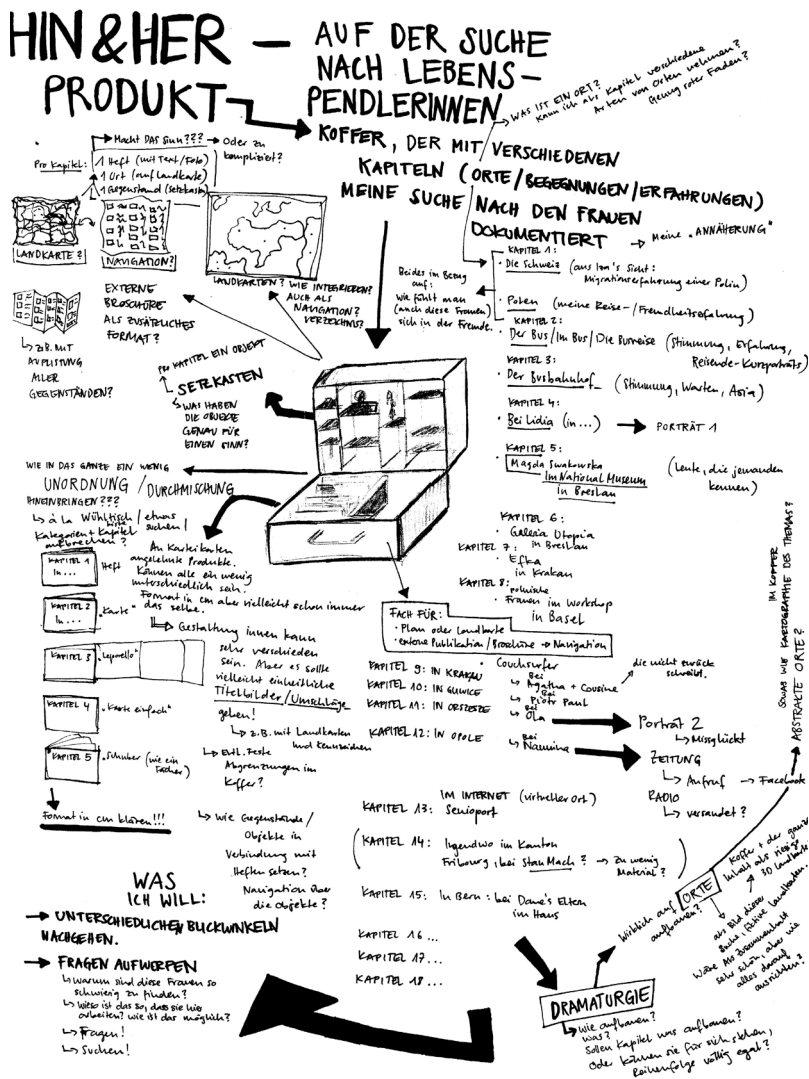 HIN & HER —
PRODUKT
AUF DER SUCHE
NACH LEBENS-
PENDLERINNEN
KOFFER, DER MIT VERSCHIEDENEN
KAPITELN (ORTE/BEGEGNUNGEN/ERFAHRUNGEN)
MEINE SUCHE NACH DEN FRAUEN
DOKUMENTIERT → Meine "ANNÄHERUNG"
WAS IST EIN ORT?
Kann ich als Kapitel verschiedene
Arten von Orten nehmen?
Genug roter Faden?
Macht DAS Sinn??? → Oder zu
kompliziert?
Pro Kapitel:
1 Heft (mit Text/Foto)
1 Ort (auf Landkarte)
1 Gegenstand (Setzkasten)
LANDKARTE?
NAVIGATION?
LANDKARTEN? WIE INTEGRIEREN?
AUCH ALS
NAVIGATION?
VERZEICHNIS?
EXTERNE
BROSCHÜRE
ALS ZUSÄTZLICHES
FORMAT?
z.B. MIT
AUFLISTUNG
ALLER
GEGENSTÄNDEN?
PRO KAPITEL EIN OBJEKT
SETZKASTEN
WAS HABEN
DIE OBJEKTE
GENAU FÜR
EINEN SINN?
Beides im Bezug
auf:
wie fühlt man
(auch diese Frauen)
sich in der Fremde.
KAPITEL 1:
• Die Schweiz (aus Iza's Sicht:
Migrationserfahrung einer Polin)
• Polen (meine Reise-/Fremdheitserfahrung)
KAPITEL 2:
Der Bus/Im Bus/Die Busreise (Stimmung, Erfahrung,
Reisende-Kurzporträts)
KAPITEL 3:
• Der Busbahnhof (Stimmung, Warten, Asia)
KAPITEL 4:
• Bei Lidia (in...) → PORTRÄT 1
KAPITEL 5:
Magda Swakowska
Im National Museum
in Breslau
(Leute, die jemanden
kennen)
KAPITEL 6:
• Galeria Utopia
in Breslau
KAPITEL 7:
• Efka
in Krakau
KAPITEL 8:
• polnische
Frauen im Workshop
in Basel
WIE IN DAS GANZE EIN WENIG
UNORDNUNG/DURCHMISCHUNG
HINEINBRINGEN???
à la Wühltisch/etwas
suchen/
Kategorien + Kapitel
aufbrechen?
KAPITEL 1
In ...
Heft
KAPITEL 2
In ...
"Karte"
KAPITEL 3
"Leporello"
KAPITEL 4
"Karte einfach"
KAPITEL 5
"Schuber (wie ein
Fächer)
Format in cm klären!!!
An Karteikarten
angelehnte Produkte.
Können alle ein wenig
unterschiedlich sein.
Format in cm aber vielleicht schon immer
das selbe.
Gestaltung innen kann
sehr verschieden
sein. Aber es sollte
vielleicht einheitliche
Titelbilder/Umschläge
geben!
z.B. mit Landkarten
und Kennzeichen
Evtl. Feste
Abgrenzungen im
Koffer?
Wie Gegenstände/
Objekte in
Verbindung mit
Heften setzen?
Navigation über
die Objekte?
FACH FÜR:
• Plan oder Landkarte
• externe Publikation/Broschüre → Navigation
KAPITEL 9: IN KRAKAU
KAPITEL 10: IN GLIWICE
KAPITEL 11: IN ORSZESZE
KAPITEL 12: IN OPOLE
• Couchsurfer
Bei
Agatha + Cousine
die nicht zurück
schreibt.
Bei
Piotr Paul
Bei
Ola
Bei
Naumina
Porträt 2
Missglückt
ZEITUNG
Aufruf → Facebook
RADIO
versandet?
KAPITEL 13: IM INTERNET (virtueller Ort)
Senioport
KAPITEL 14: Irgendwo im Kanton
Fribourg, bei Stan Mach? → Zu wenig
Material?
KAPITEL 15: In Bern: bei Dane's Eltern
im Haus
KAPITEL 16 ...
KAPITEL 17 ...
KAPITEL 18 ...
WAS
ICH WILL:
→ UNTERSCHIEDLICHEN BLICKWINKELN
NACHGEHEN.
→ FRAGEN AUFWERFEN
Warum sind diese Frauen so
schwierig zu finden?
Wieso ist das so, dass sie hier
arbeiten? Wie ist das möglich?
Fragen!
Suchen!
DRAMATURGIE
Wie aufbauen?
Was?
Sollen Kapitel was aufbauen?
Oder können sie für sich stehen,
Reihenfolge völlig egal?
Wirklich auf ORTE
aufbauen?
Koffer + der ganze
Inhalt als riesige
3D Landkarte.
als Bild dieser
Suche, fiktive Landkarten.
Wäre als Zusammenhalt
sehr schön, aber wie
alles darauf
ausrichten?
ABSTRAKTE ORTE?
SOWAS WIE KARTOGRAPHIE DES THEMAS?
IM KOFFER